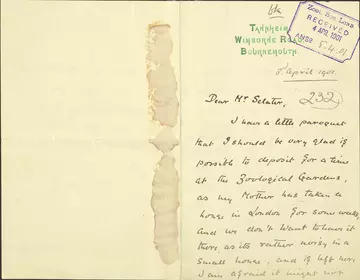 Zool. Soc. Lond.
RECEIVED
4 APR. 1901
ANSD 5.4.01
Tannheim,
Wimborne Road,
Bournemouth.
April 1901.
Dear Mr Sclater,
232
I have a little paroquet
that I should be very glad if
possible to deposit for a time
at the Zoological Gardens,
as my Mother has taken a
house in London for some weeks
and we don't want to have it
there as its rather noisy in a
small house, and if left here
I am afraid it might not